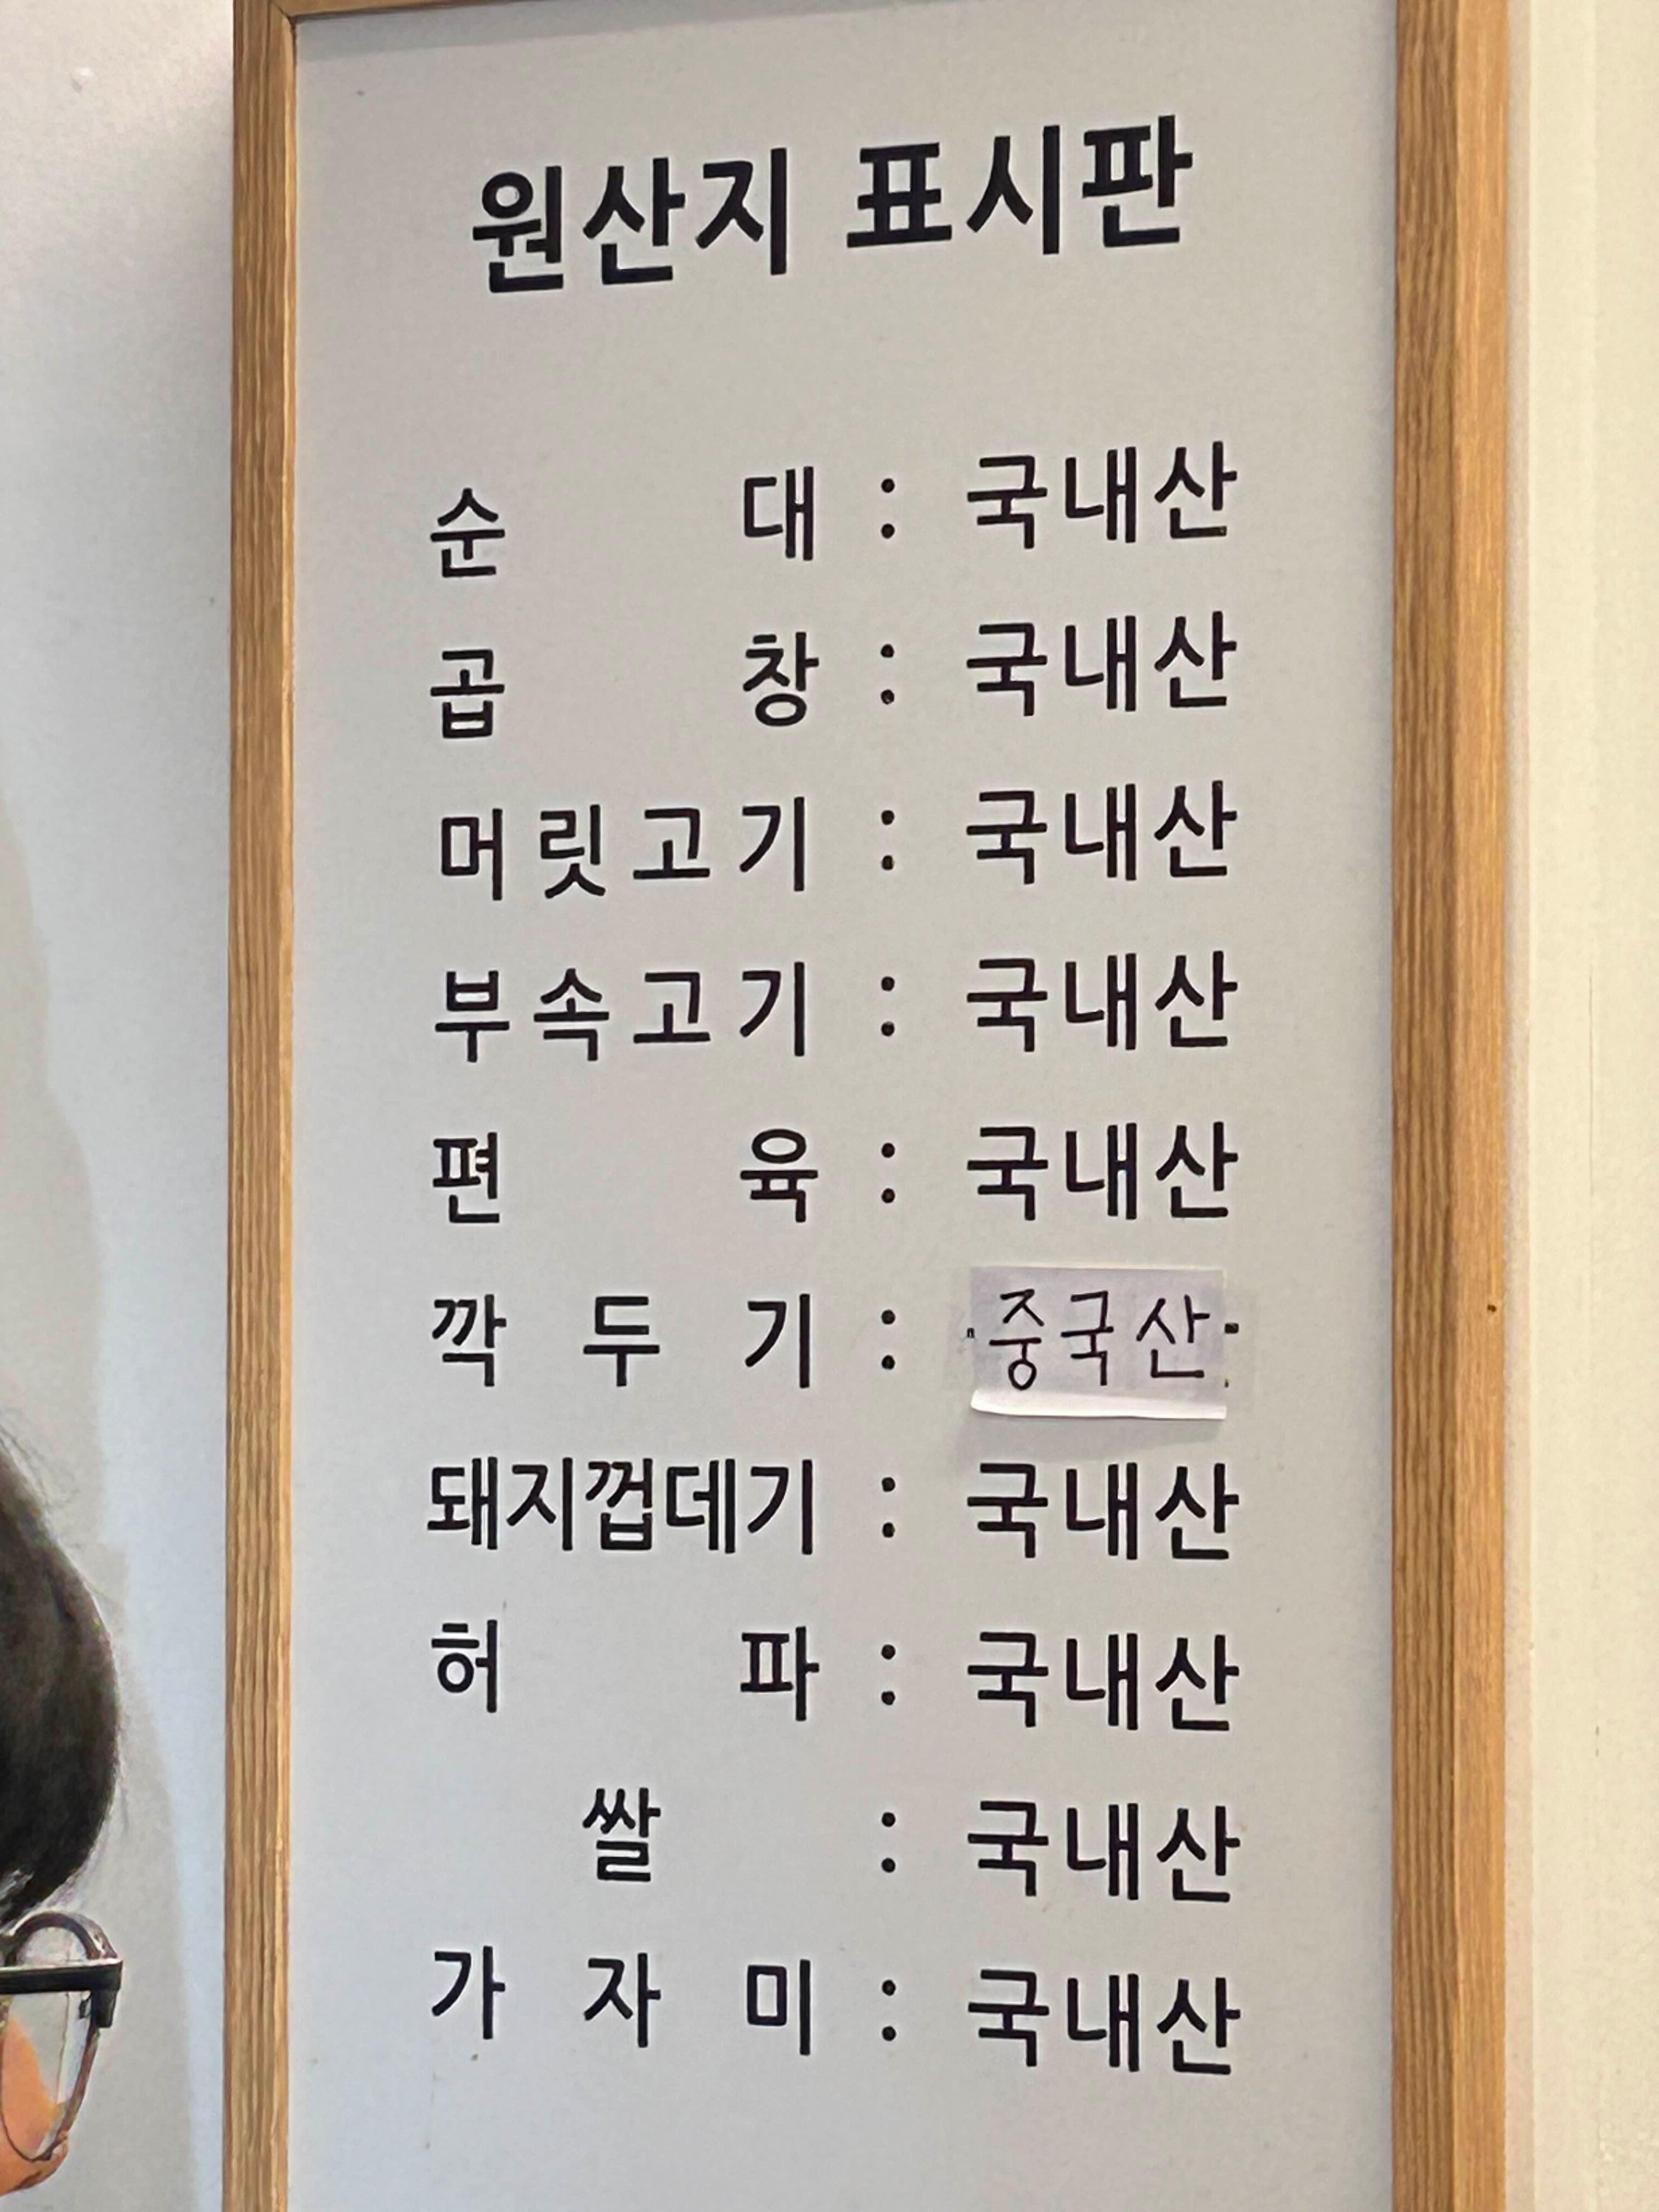 원산지 표시판
순대 : 국내산
곱창 : 국내산
머릿고기 : 국내산
부속고기 : 국내산
편육 : 국내산
깍두기 : 중국산
돼지껍데기 : 국내산
허파 : 국내산
쌀 : 국내산
가자미 : 국내산